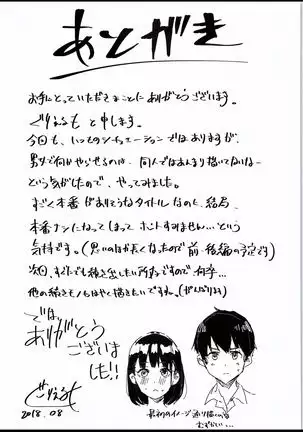 あとがき
お手にとっていただきまことにありがとうございます。
ぐりえるもと申します。
今回も、いつものシチュエーションではありますが、
男女で何かやらせるのは、同人ではあんまり描いてないなー
という気がしたので、やってみました。
すごく本番がありそうなタイトルなのに、結局
本番ナシになってしまって ホントすみません…という
気持です。(思いのほか長くなったので前・後編の予定です)
次回、すぐでも続き出したい所存ですので、何卒…
他の続きモノもはやく描きたいですね。(がんばります)
では
ありがとう
ございま
した!!
ぐりえるも
2018.08
最初のイメージ通り描くのは
むずかしい…